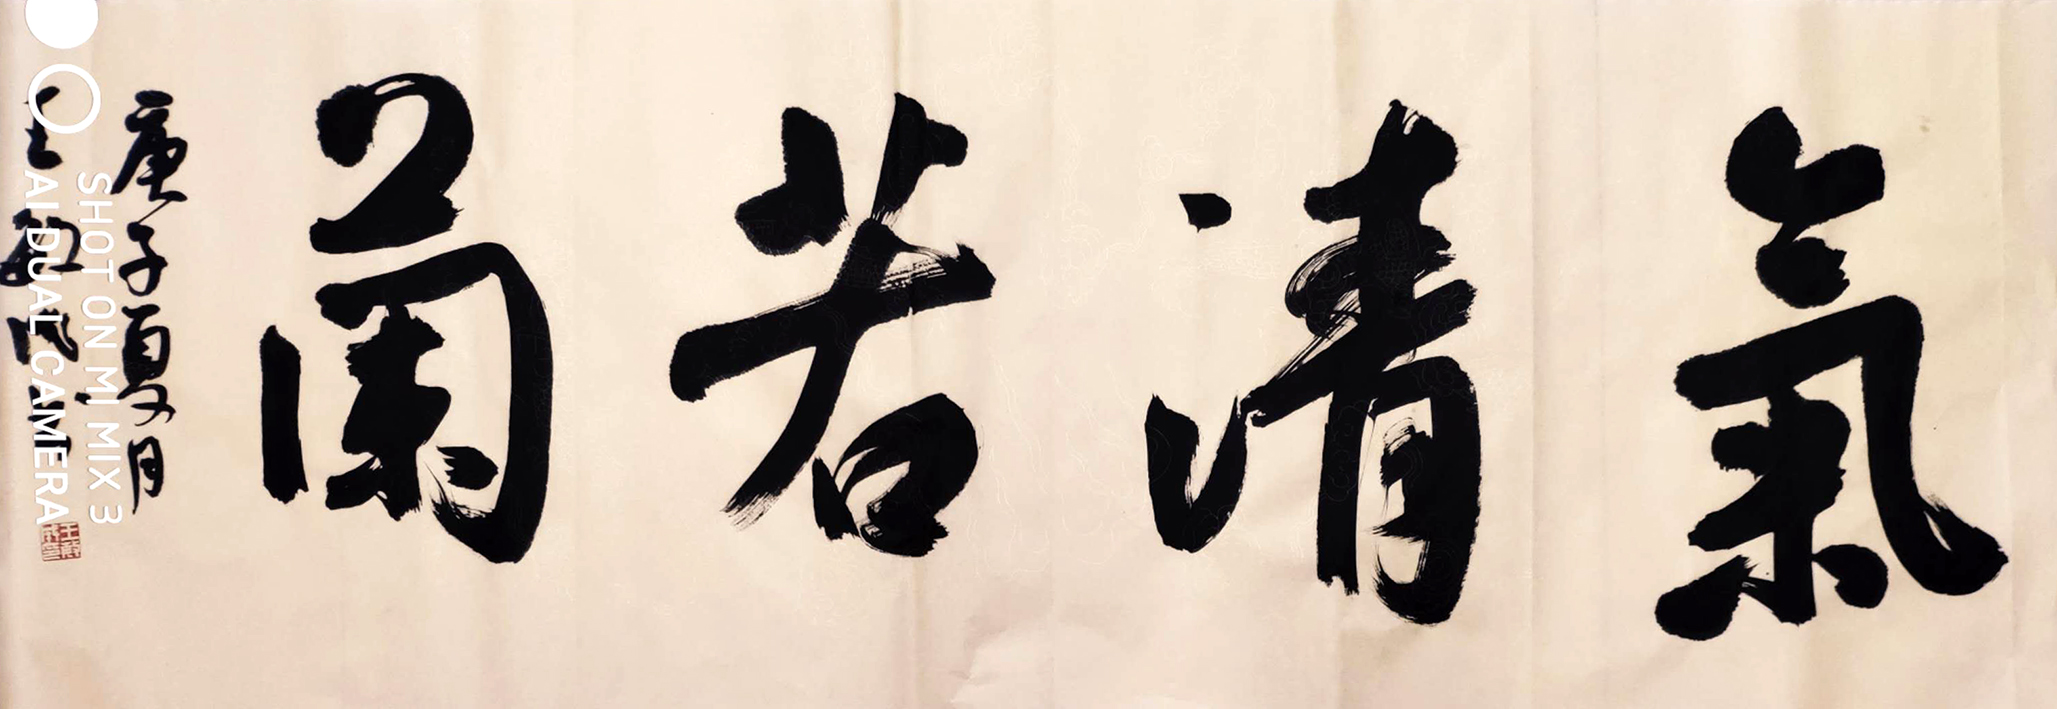 氣清若蘭
庚子夏月
SHOT ON MI MIX 3
AI DUAL CAMERA